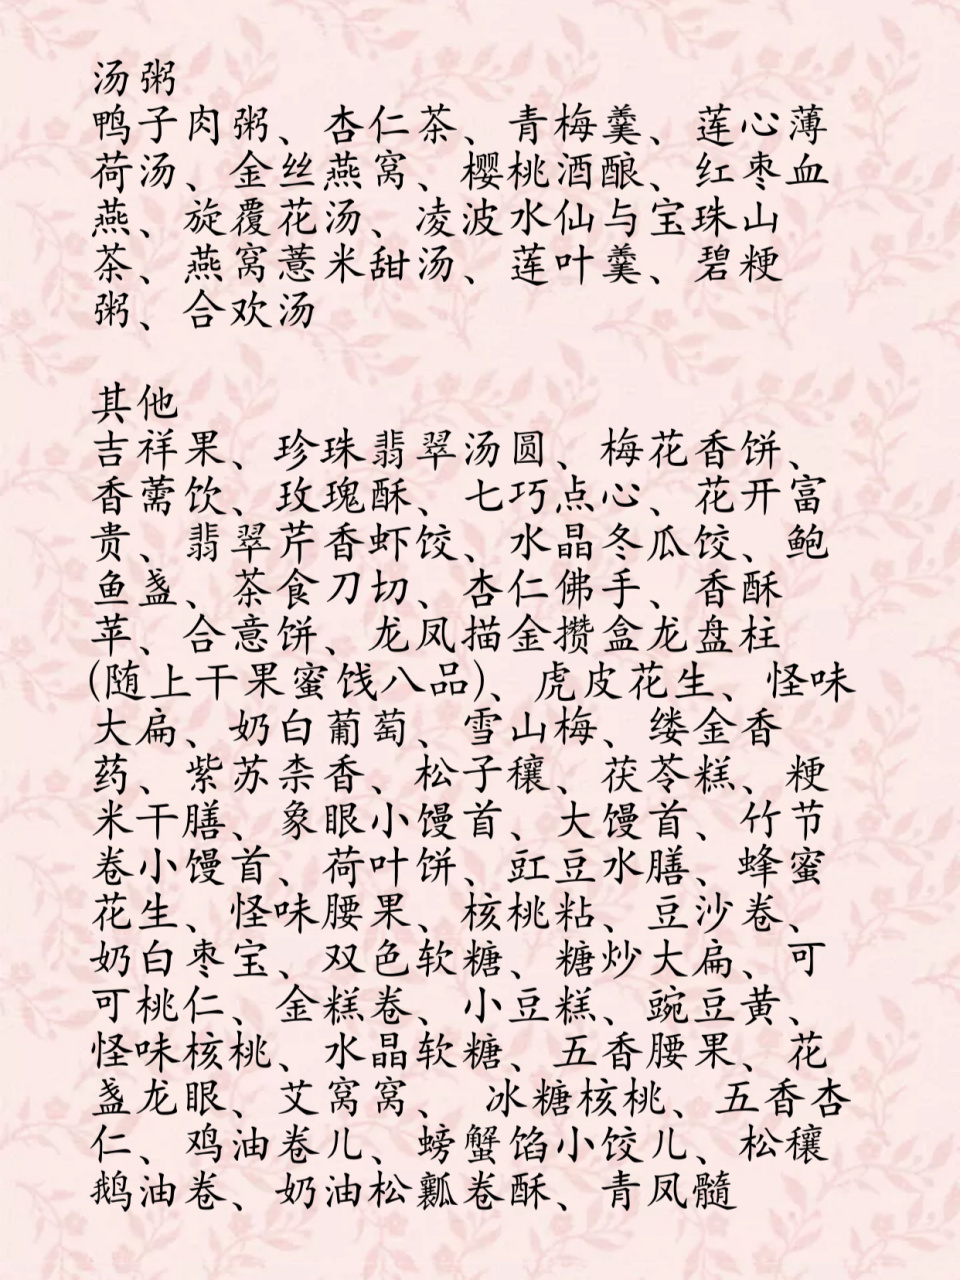 汤粥
鸭子肉粥、杏仁茶、青梅羹、莲心薄
荷汤、金丝燕窝、樱桃酒酿、红枣血
燕、旋覆花汤、凌波水仙与宝珠山
茶、燕窝薏米甜汤、莲叶羹、碧粳
粥、合欢汤
其他
吉祥果、珍珠翡翠汤圆、梅花香饼、
香薷饮、玫瑰酥、七巧点心、花开富
贵、翡翠芹香虾饺、水晶冬瓜饺、鲍
鱼盏、茶食刀切、杏仁佛手、香酥
苹、合意饼、龙凤描金攒盒龙盘柱
(随上干果蜜饯八品)、虎皮花生、怪味
大扁、奶白葡萄、雪山梅、缕金香
药、紫苏柰香、松子穰、茯苓糕、粳
米干膳、象眼小馒首、大馒首、竹节
卷小馒首、荷叶饼、豇豆水膳、蜂蜜
花生、怪味腰果、核桃粘、豆沙卷、
奶白枣宝、双色软糖、糖炒大扁、可
可桃仁、金糕卷、小豆糕、豌豆黄、
怪味核桃、水晶软糖、五香腰果、花
盏龙眼、艾窝窝、 冰糖核桃、五香杏
仁、鸡油卷儿、螃蟹馅小饺儿、松穰
鹅油卷、奶油松瓤卷酥、青凤髓